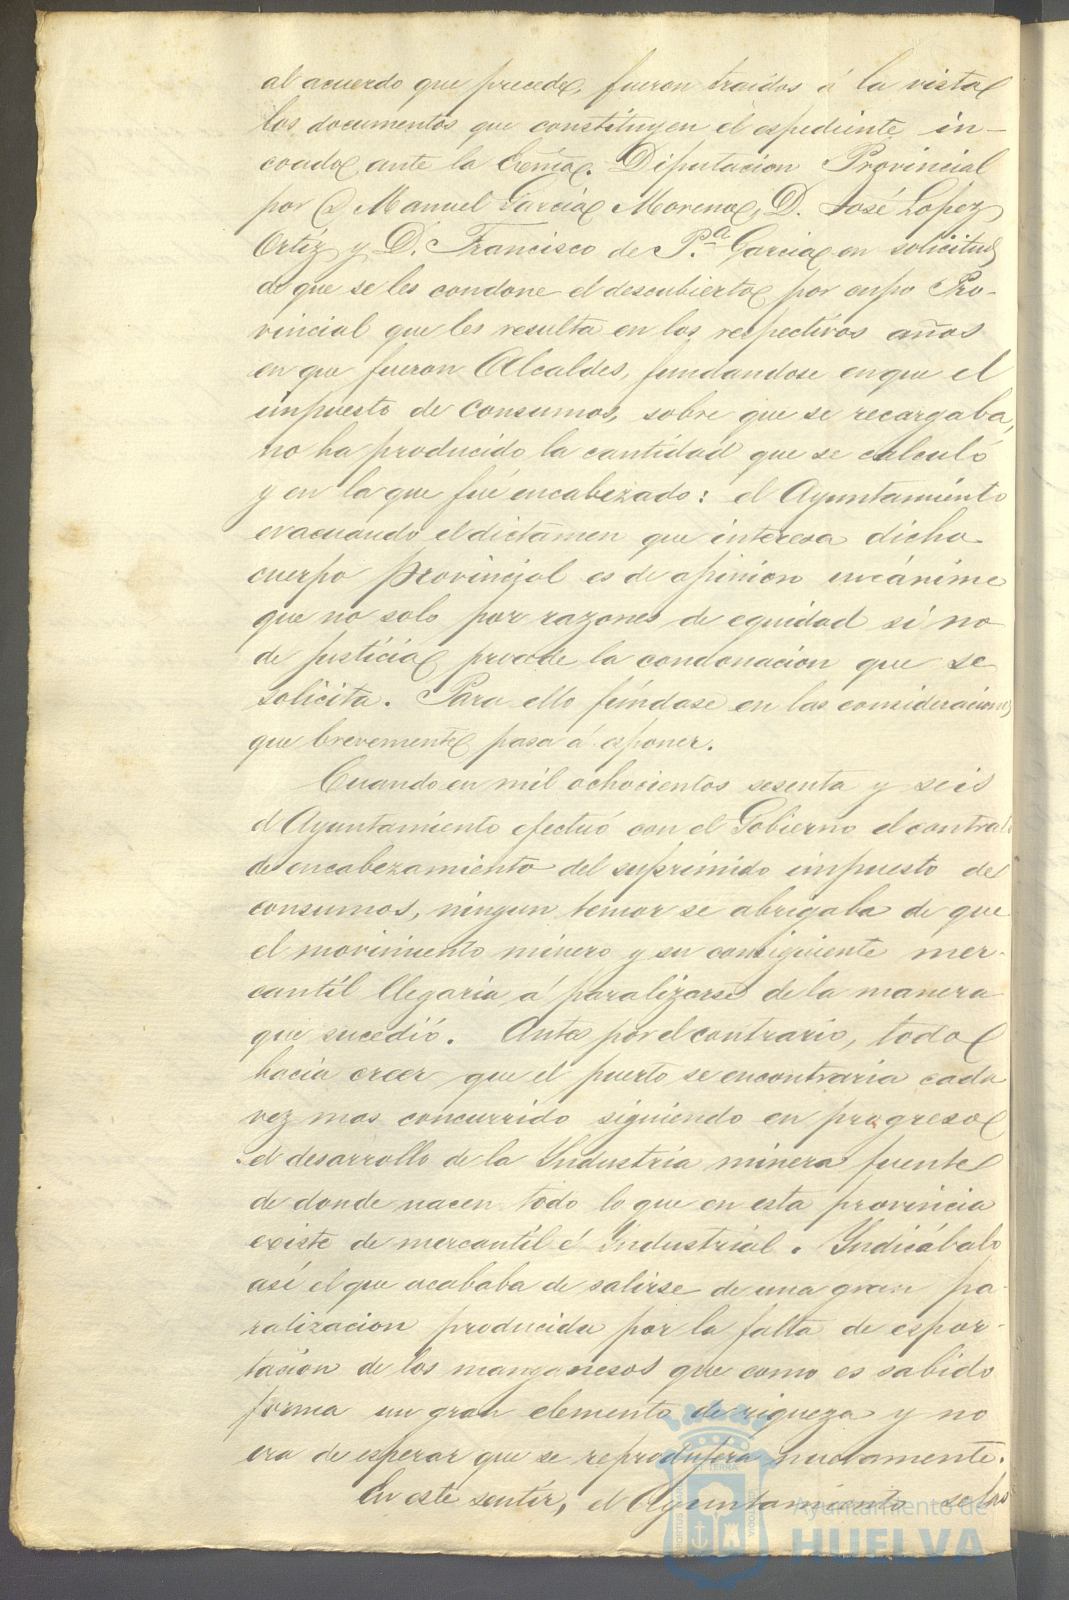 al acuerdo que precede, fueron traidos á la vista
los documentos que constituyen el espediente in-
coado ante la Excma. Diputacion Provincial
por D Manuel García Moreno, D. José Lopez
Ortíz y D. Francisco de P.ª Garcia en solicitud
de que se les condone el descubierto por cupo Pro-
vincial que les resulta en los respectivos años
en que fueron Alcaldes, fundandose en que el
impuesto de Consumos, sobre que se recargaba,
no ha producido la cantidad que se calculó
y en la que fué encabezado: el Ayuntamiento
evacuando el dictamen que interesa dicho
cuerpo provincial es de opinion unánime
que no solo por razones de equidad si no
de justicia procede la condonacion que se
solicita. Para ello fúndase en las consideraciones
que brevemente pasa á esponer.
Cuando en mil ochocientos sesenta y seis
el Ayuntamiento efectuó con el Gobierno el contrato
de encabezamiento del suprimido impuesto de
consumos, ningun temor se abrigaba de que
el movimiento minero y su consiguiente mer-
cantíl llegaria á paralizarse de la manera
que sucedió. Antes por el contrario, todo
hacia creer que el puerto se encontraria cada
vez mas concurrido siguiendo en progreso
el desarrollo de la Industria minera fuente
de donde nacen todo lo que en esta provincia
existe de mercantil é Industrial. Indicábalo
así el que acababa de salirse de una gran pa-
ralizacion producida por la falta de espor-
tacion de los manganesos que como es sabido
forma un gran elemento de riqueza y no
era de esperar que se reprodujera nuevamente.
En este sentir, el Ayuntamiento se ha
Ayuntamiento de
HUELVA